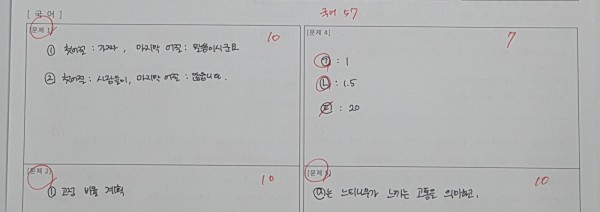 [국 어]
국어 57
[문제 1]
10
① 첫어절 : 가자, 마지막 어절 : 말씀이시군요
② 첫어절 : 사람들이, 마지막 어절 : 많습니다.
[문제 4]
7
㉠ : 1
㉡ : 1.5
㉢ : 20
[문제 2]
10
① 고집 비율 계획
[문제 5]
10
는 느티나무가 느끼는 고통을 의미하고,